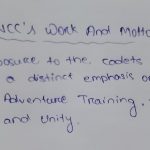 NCC's Work And Motto
posure to the cadets
a distinct emphasis on
Adventure Training,
and Unity.